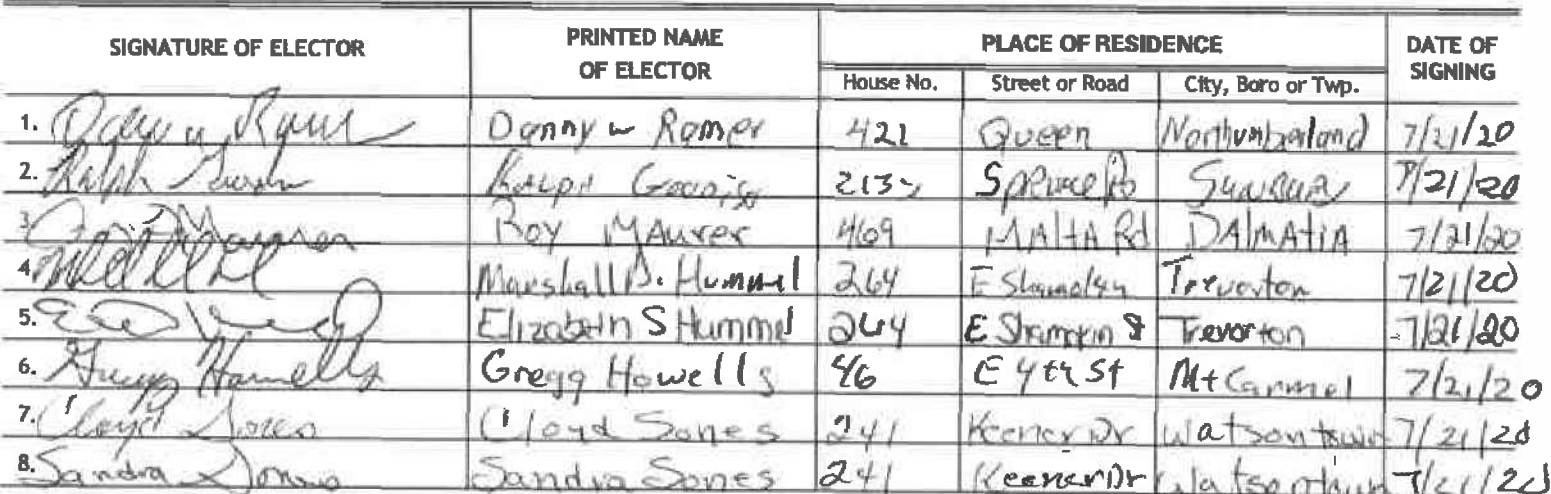 SIGNATURE OF ELECTOR PRINTED NAME OF ELECTOR PLACE OF RESIDENCE DATE OF SIGNING
House No. Street or Road City, Boro or Twp.
1. Danny w Ramer 421 Queen Northumberland 7/21/20
2. Ralph 213 Spruce 7/21/20
3. Maurer Roy MAurer 469 MAltA Rd DAlmAtiA 7/21/20
4. Marshall D. Hummel 264 E Trevorton 7/21/20
5. Elizabeth S Hummel 264 E Shamokin St Trevorton 7/21/20
6. Gregg Howells Gregg Howells 46 E 4th St Mt Carmel 7/21/20
7. Cloyd Sones Cloyd Sones 241 Keener Dr Watsontown 7/21/20
8. Sandra Sones Sandra Sones 241 Keener Dr Watsontown 7/21/20